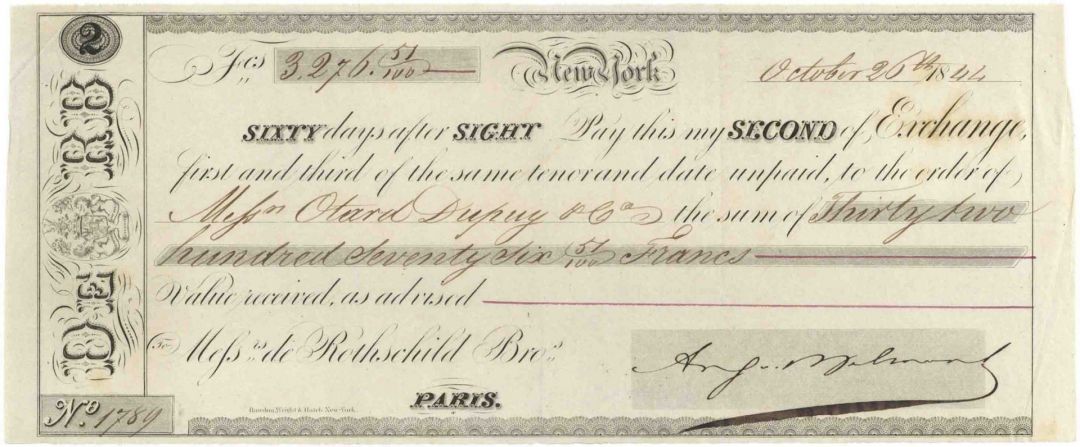 2
DE RB
Fcs 3,276.51/100 New York October 26th 1844
SIXTY days after SIGHT Pay this my SECOND of Exchange,
first and third of the same tenor and date unpaid, to the order of
Messrs Otard Dupuy & Co the sum of Thirty two
hundred Seventy Six 51/100 Francs
Value received, as advised
To Messrs de Rothschild Bros
PARIS.
Rawdon, Wright & Hatch New-York.
No. 1789